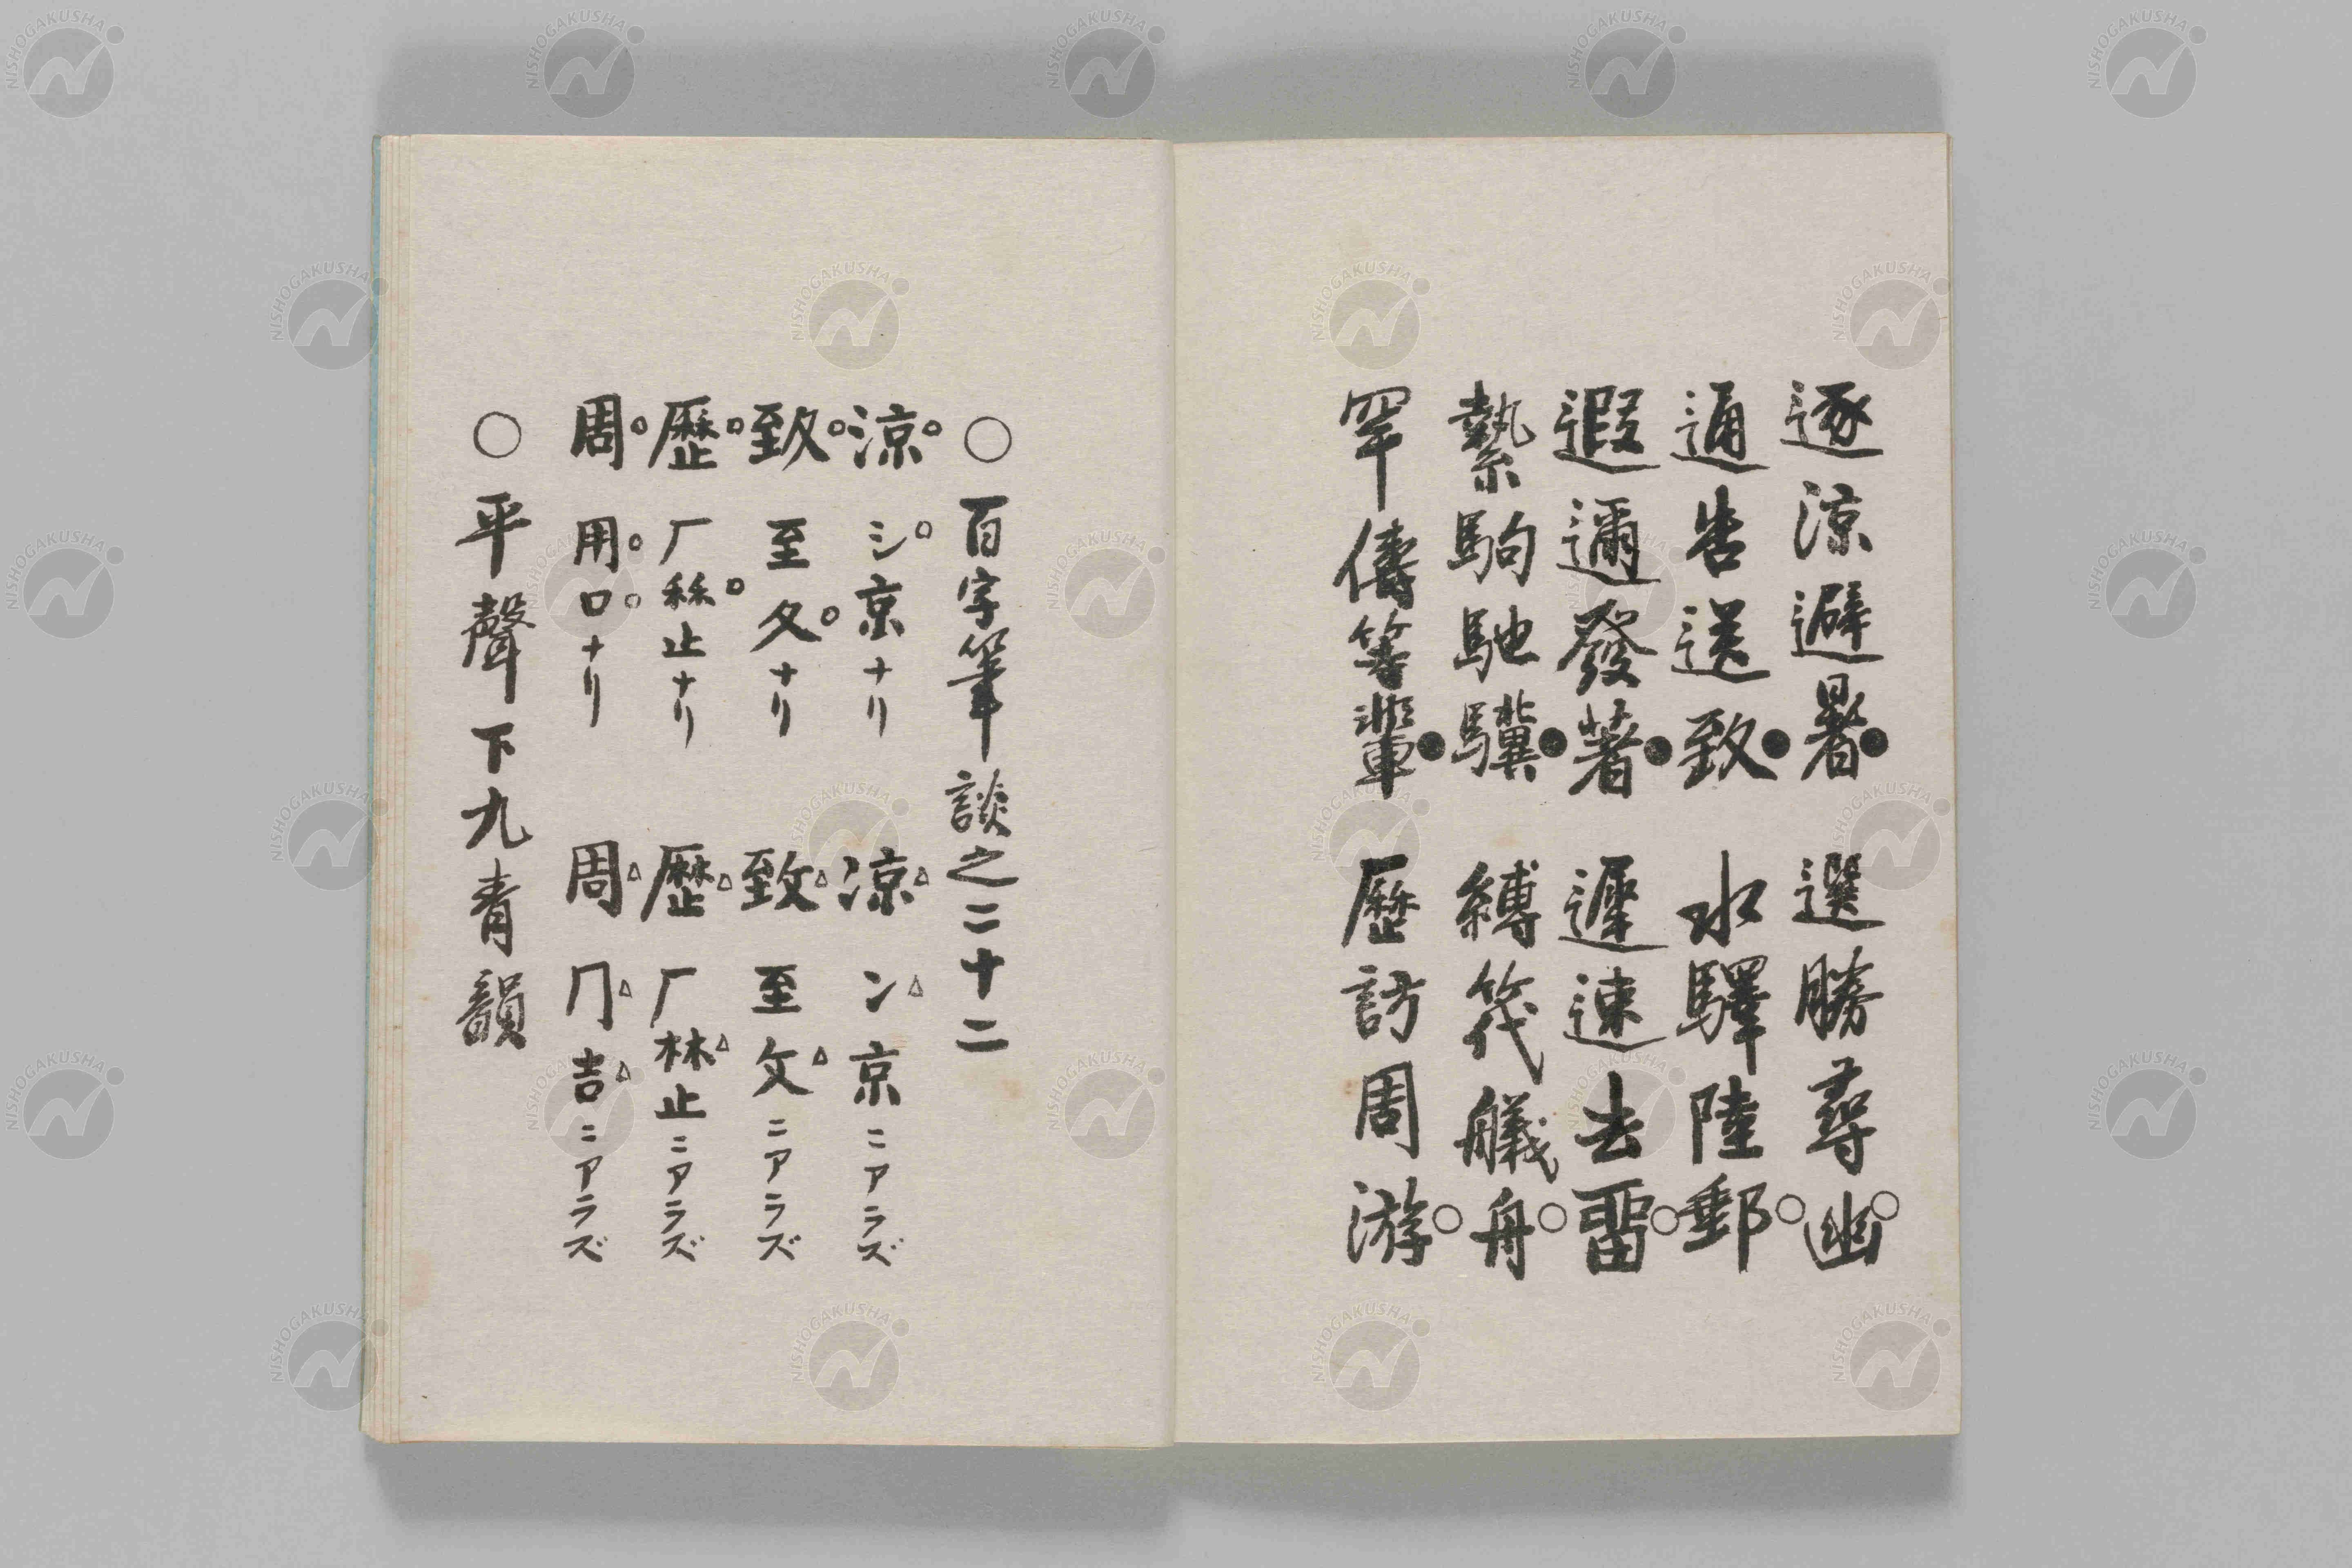 逐涼避暑●選勝尋幽○
通告送致●水驛陸郵○
遐邇發著●遲速去畱○
縶駒馳驥●縛筏艤舟○
罕儔等輩●歷訪周游○
○百字筆談之二十二
涼○氵○京ナリ 凉△冫△京ニアラズ
致○至夊○ナリ 致△至攵△ニアラズ
歷○厂秝○止ナリ 歴△厂林△止ニアラズ
周○用○口○ナリ 周△冂△吉△ニアラズ
○平聲下九青韻
NISHOGAKUSHA